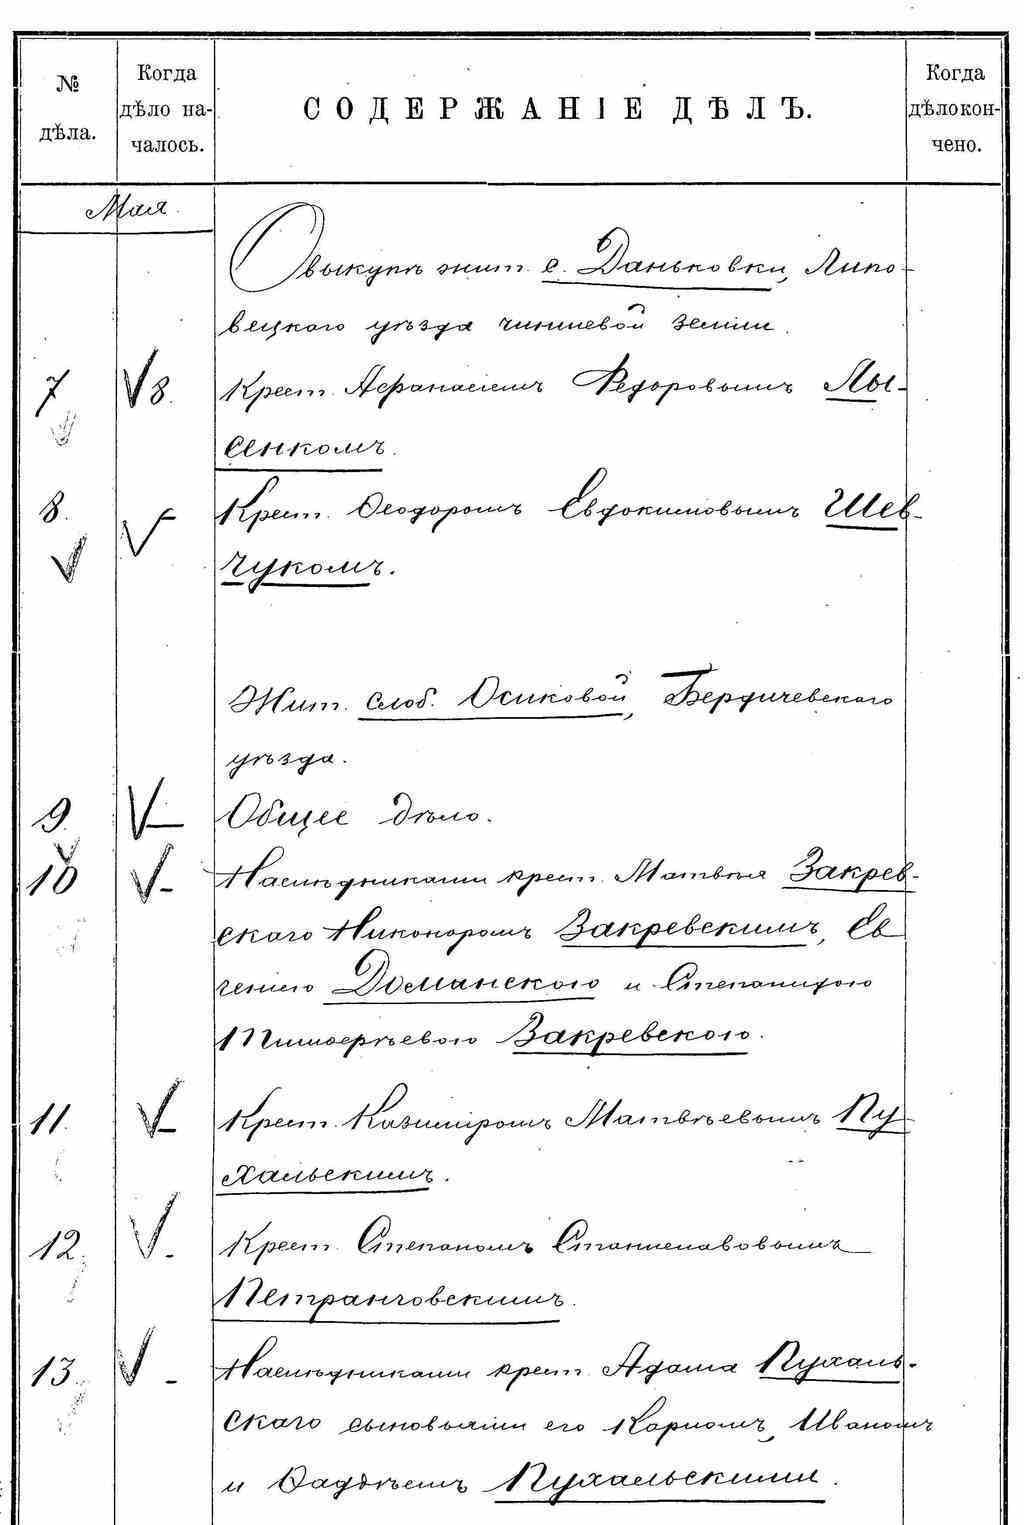 № дѣла.
Когда дѣло на-чалось.
СОДЕРЖАНІЕ ДѢЛЪ.
Когда дѣло кон-чено.
Мая
О выкупѣ жит. с. Даньковки, Липо-
вецкаго уѣзда чиншевой земли.
7 8. Крест. Афанасіемъ Федоровымъ Лы-
сенкомъ.
8. Крест. Ѳеодоромъ Евдокимовымъ Шев-
чукомъ.
Жит. слоб. Осиковой, Бердичевскаго
уѣзда.
9. – Общее дѣло.
10 – Наслѣдниками крест. Матвѣя Закрев-
скаго Никоноромъ Закревскимъ, Ев
геніею Доманскою и Степанидою
Тимоѳеѣевою Закревскою.
11. – Крест. Казиміромъ Матвѣевымъ Пу-
хальскимъ.
12. – Крест. Степаномъ Станиславовымъ
Петранговскимъ.
13. – Наслѣдниками крест. Адама Пухаль-
скаго сыновьями его Карломъ, Иваномъ
и Ѳадѣемъ Пухальскими.